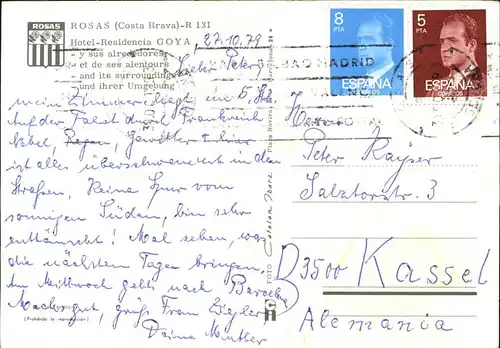 ROSAS
ROSAS (Costa Brava)-R 131
Hotel-Residencia GOYA
- y sus alrededores
- et de ses alentours
- and its surroundings
- und ihrer Umgebung
27.10.79
Lieber Peter,
mein Zimmer liegt im 5. Stk.
Auf der Fahrt durch Frankreich
Nebel, Regen, Gewitter + hier
ist alles überschwemmt in den
Straßen. Keine Spur vom
sonnigen Süden, bin sehr
enttäuscht! Mal sehen, was
die nächsten Tagen bringen.
Am Mittwoch geht's nach Barcelona
Mach's gut, grüß Frau Ziegler
Deine Mutter
(Prohibida la reproducción)
FOTO
8
PTA
ESPAÑA
CORREOS
5
PTA
ESPAÑA
CORREOS
MADRID
Herrn
Peter Kayser
Salztorstr. 3
D 3500 Kassel
Alemania